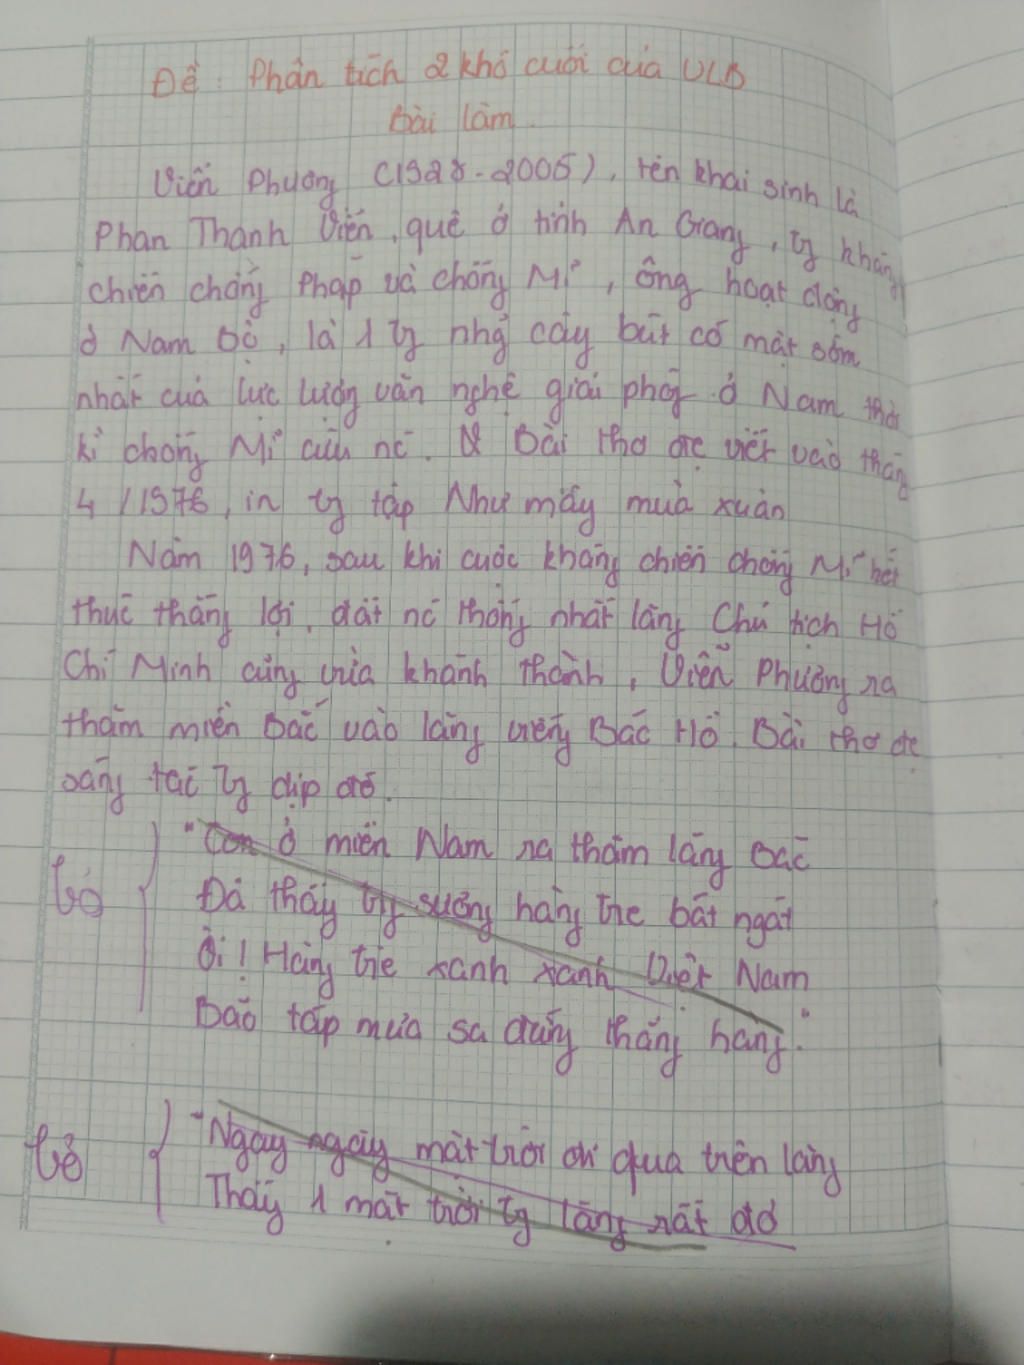 Đề: Phân tích 2 khổ cuối của VLB
Bài làm.
Viễn Phương (1928-2005), tên khai sinh là
Phan Thanh Viễn, quê ở tỉnh An Giang, tg kháng
chiến chống Pháp và chống Mĩ, ông hoạt động
ở Nam Bộ, là 1 tg nhg cây bút có mặt sớm
nhất của lực lượng văn nghệ giải phóg ở Nam thời
kì chống Mĩ cứu nc. Bài thơ đc viết vào tháng
4/1976, in tg tập Như mấy mùa xuân
Năm 1976, sau khi cuộc kháng chiến chống Mĩ kết
thúc thắng lợi, đất nc thống nhất lăng Chủ tịch Hồ
Chí Minh cũng vừa khánh thành, Viễn Phương ra
thăm miền Bắc vào lăng viếng Bác Hồ. Bài thơ đc
sáng tác tg dịp đó.
"Con ở miền Nam ra thăm lăng Bác
Đã thấy tg sương hàng tre bát ngát
bỏ
Ôi! Hàng tre xanh xanh Việt Nam
Bão táp mưa sa đứng thẳng hàng."
"Ngày ngày mặt trời đi qua trên lăng
bỏ
Thấy 1 mặt trời tg lăng rất đỏ